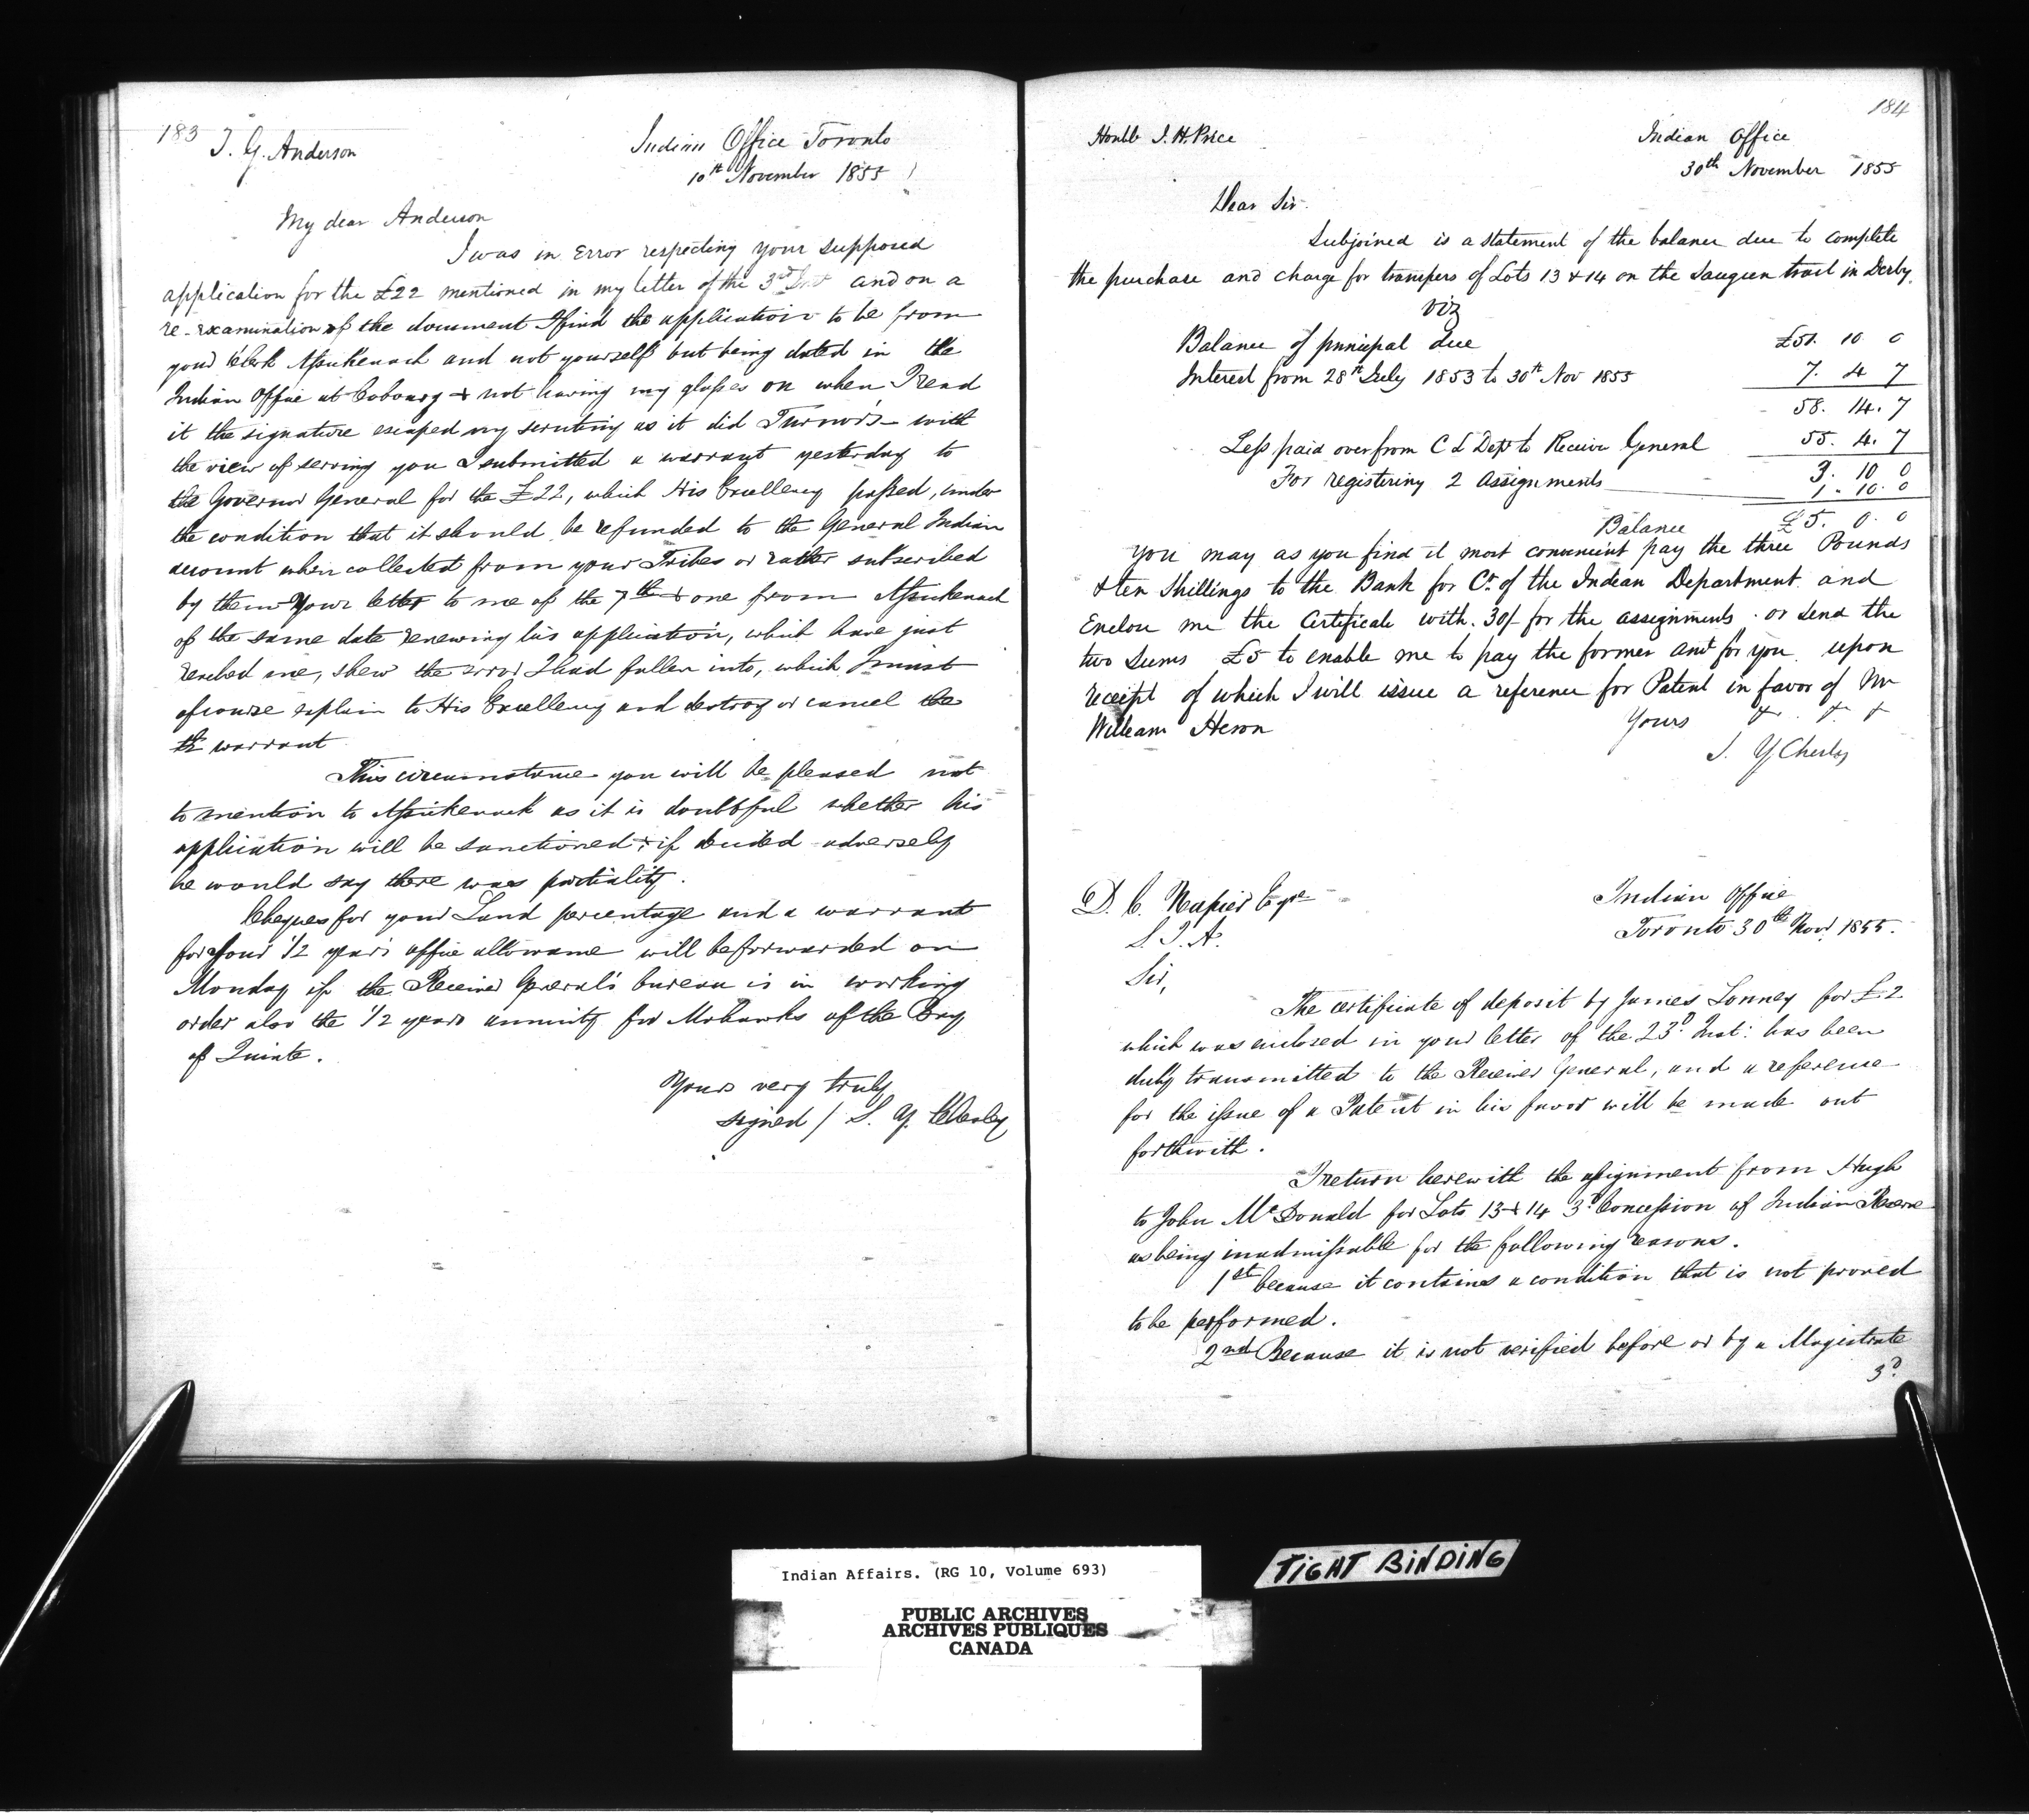 183
T. G. Anderson
Indian Office Toronto
10th November 1855
My dear Anderson
I was in Error respecting your supposed
application for the £22 mentioned in my letter of the 3rd Inst and on a
re-examination of the document I find the application to be from
your Clerk Assikenack and not yourself but being dated in the
Indian Office at Cobourg & not having my glasses on when I read
it the signature escaped my scrutiny as it did Turnor's - with
the view of serving you I submitted a warrant yesterday to
the Governor General for the £22, which His Excellency passed, under
the condition that it should be refunded to the General Indian
account when collected from your Tribes or rather subscribed
by them Your letter to me of the 7th & one from Assikenack
of the same date renewing his application, which have just
reached me, shew the error I had fallen into, which I must
of course explain to His Excellency and destroy or cancel the
the warrant
This circumstance you will be pleased not
to mention to Assikenack as it is doubtful whether his
application will be sanctioned & if decided adversely
he would say there was partiality.
Cheques for your Land percentage and a warrant
for your 1/2 year's office allowance will be forwarded on
Monday if the Receiver General's bureau is in working
order also the 1/2 years annuity for Mohawks of the Bay
of Quinte.
Yours very truly
signed / S. Y. Chesley
184
Honble J. H. Price
Indian Office
30th November 1855
Dear Sir
Subjoined is a statement of the balance due to complete
the purchase and charge for transfers of Lots 13 & 14 on the Saugeen tract in Derby.
Viz
Balance of principal due £51. 10. 0
Interest from 28th July 1853 to 30th Nov 1855 7. 4. 7
58. 14. 7
Less paid over from C L Dept to Receiver General 55. 4. 7
3. 10 0
For registering 2 Assignments 1. 10. 0
Balance £5. 0. 0
You may as you find it most convenient pay the three Pounds
& ten Shillings to the Bank for Cr. of the Indian Department and
Enclose me the Certificate with 30/ for the assignments. or send the
two Sums £5 to enable me to pay the former amt for you upon
receipt of which I will issue a reference for Patent in favor of Mr
William Heron
Yours & & &
S. Y Chesley
D. C. Napier Esqre
S. I. A.
Indian Office
Toronto 30th Novr. 1855.
Sir,
The certificate of deposit by James Lonney for £2
which was enclosed in your letter of the 23d. Inst: has been
duly transmitted to the Receiver General, and a reference
for the issue of a Patent in his favor will be made out
forthwith.
I return herewith the assignment from Hugh
to John McDonald for Lots 13 & 14 3d. Concession of Indian Reserve
as being inadmissable for the following reasons.
1st because it contains a condition that is not proved
to be performed.
2nd Because it is not verified before or by a Magistrate
3d.
Indian Affairs. (RG 10, Volume 693)
PUBLIC ARCHIVES
ARCHIVES PUBLIQUES
CANADA
TIGHT BINDING